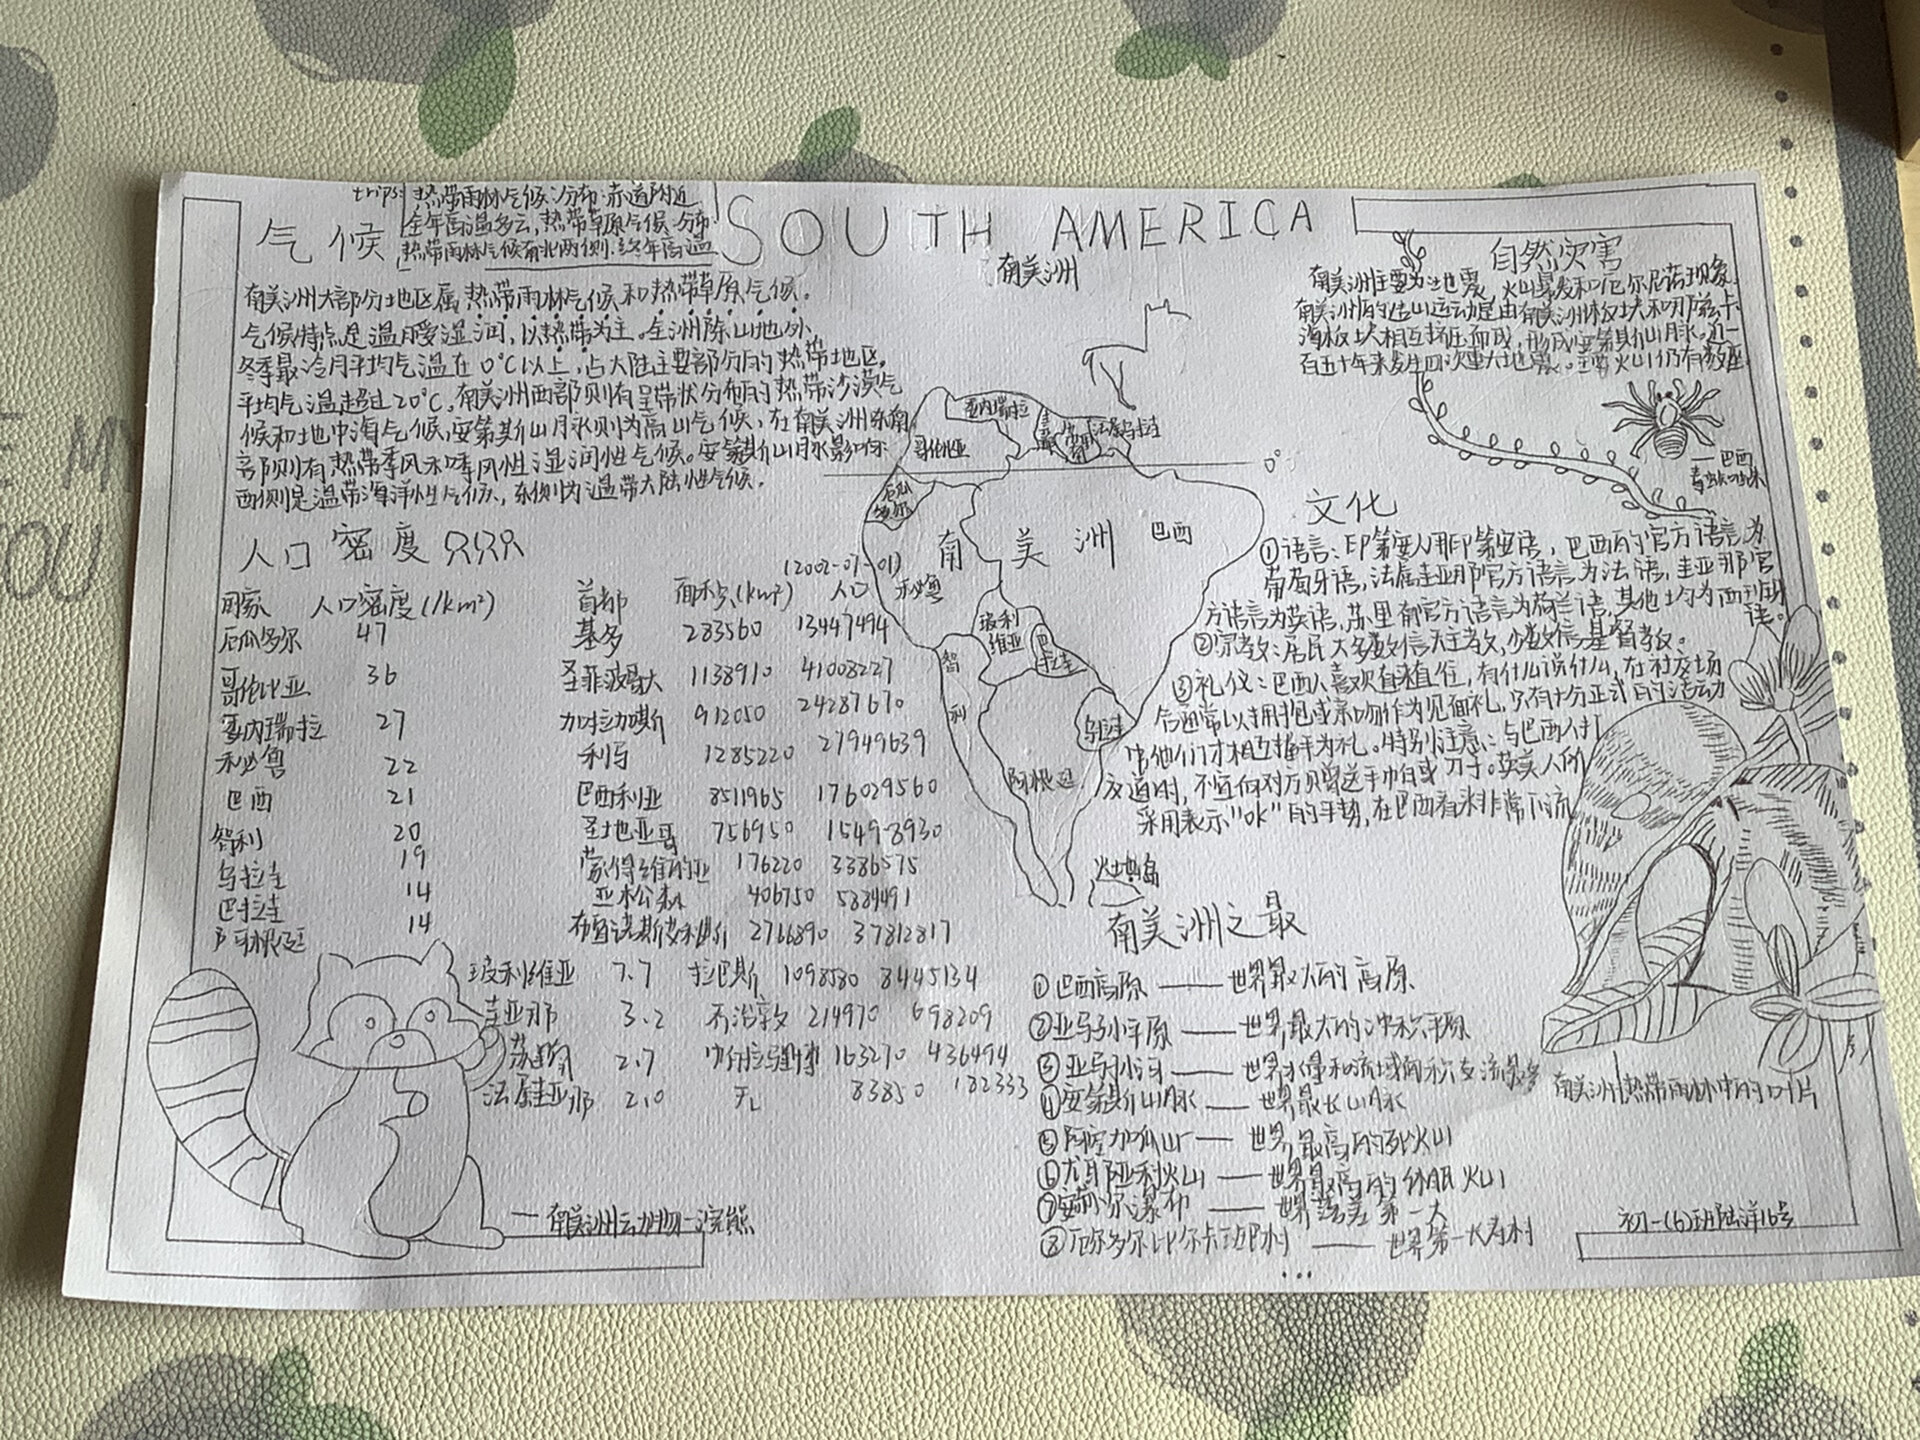 SOUTH AMERICA
南美洲
trips: 热带雨林气候:分布:赤道附近
全年高温多云,热带草原气候:分布
热带雨林气候南北两侧.终年高温
气候
南美洲大部分地区属热带雨林气候和热带草原气候。
气候特点是温暖湿润,以热带为主。全洲除山地外,
冬季最冷月平均气温在0℃以上,占大陆主要部分的热带地区。
平均气温超过20℃。南美洲西部则有呈带状分布的热带沙漠气
候和地中海气候,安第斯山脉则为高山气候,在南美洲东南
部则有热带季风和季风性湿润性气候。安第斯山脉影响
西侧是温带海洋性气候,东侧为温带大陆性气候。
人口密度
(2002-07-01)
国家 人口密度(/km²) 首都 面积(km²) 人口
厄瓜多尔 47 基多 283560 13447494
哥伦比亚 36 圣菲波哥大 1138910 41008227
委内瑞拉 27 加拉加斯 912050 24287670
秘鲁 22 利马 1285220 27949639
巴西 21 巴西利亚 8511965 176029560
智利 20 圣地亚哥 756950 15498930
乌拉圭 19 蒙得维的亚 176220 3386575
巴拉圭 14 亚松森 406750 5884491
阿根廷 14 布宜诺斯艾利斯 2766890 37812817
玻利维亚 7.7 拉巴斯 1098580 8445134
圭亚那 3.2 乔治敦 214970 698209
苏里南 2.7 帕拉马里博 163270 436494
法属圭亚那 2.0 无 83850 182333
—南美洲动物—浣熊
委内瑞拉
哥伦比亚
0°
厄瓜多尔
南美洲
巴西
秘鲁
玻利维亚
巴拉圭
智利
乌拉圭
阿根廷
火地岛
自然灾害
南美洲主要为地震,火山暴发和厄尔尼诺现象。
南美洲的造山运动是由南美洲板块和纳兹卡
海板块相互挤压而成,形成安第斯山脉。近一
百五十年来发生四次重大地震。主要火山仍有数座。
—巴西
文化
①语言:印第安人用印第安语,巴西的官方语言为
葡萄牙语,法属圭亚那官方语言为法语,圭亚那官
方语言为英语,苏里南官方语言为荷兰语,其他均为西班牙
语。
②宗教:居民大多数信天主教,少数信基督教。
③礼仪:巴西人喜欢直来直往,有什么说什么,在社交场
合通常以拥抱或亲吻作为见面礼,只有十分正式的活动
中他们才相互握手为礼。特别注意:与巴西人打
交道时,不宜向对方赠送手帕或刀子。英美人的
采用表示"OK"的手势,在巴西看来非常下流
南美洲热带雨林中的叶片
南美洲之最
①巴西高原——世界最大的高原
②亚马孙平原——世界最大的冲积平原
③亚马孙河——世界水量和流域面积支流最多
④安第斯山脉——世界最长山脉
⑤阿空加瓜山——世界最高的死火山
⑥尤耶亚利火山——世界最高的休眠火山
⑦安赫尔瀑布——世界落差第一大
⑧厄尔多尔比尔卡班巴村——世界第一长寿村
...
初一(6)班陆洋16号